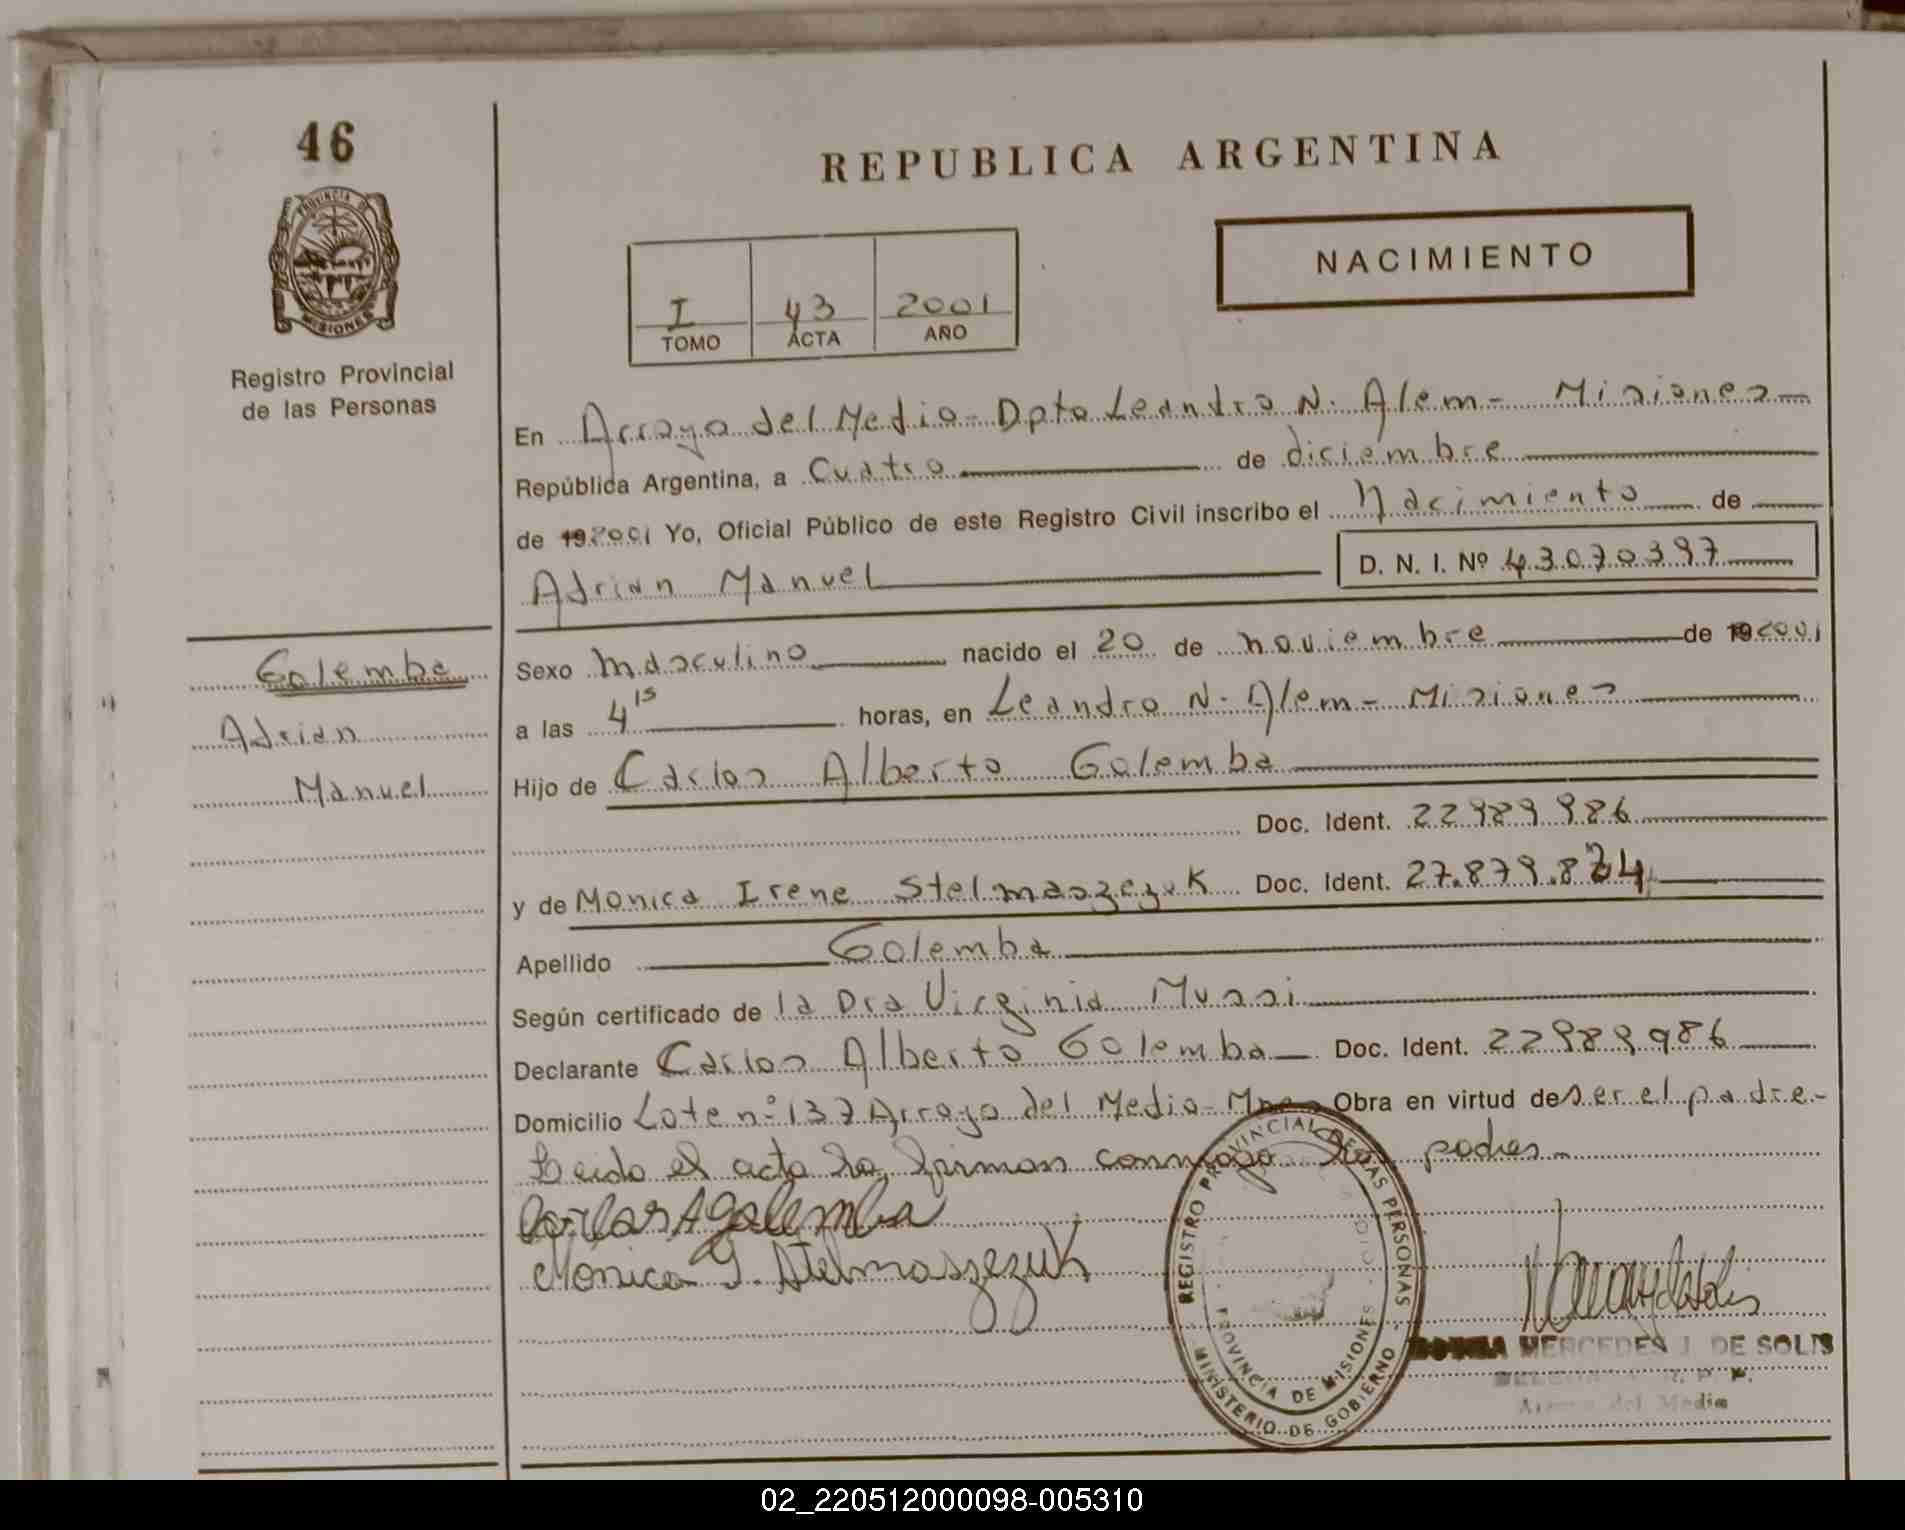 46
PROVINCIA DE
MISIONES
Registro Provincial
de las Personas
REPUBLICA ARGENTINA
NACIMIENTO
I 43 2001
TOMO ACTA AÑO
En Arroyo del Medio - Dpto Leandro N. Alem - Misiones
República Argentina, a Cuatro de diciembre
de 19 2001 Yo, Oficial Público de este Registro Civil inscribo el Nacimiento de
Adrian Manuel D. N. I. Nº 43070397
Golemba
Adrian
Manuel
Sexo Masculino nacido el 20 de noviembre de 19 2001
a las 4 15 horas, en Leandro N. Alem - Misiones
Hijo de Carlos Alberto Golemba
Doc. Ident. 22989986
y de Monica Irene Stelmaszezuk Doc. Ident. 27.879.874
Apellido Golemba
Según certificado de la Dra Virginia Mussi
Declarante Carlos Alberto Golemba Doc. Ident. 22989986
Domicilio Lote nº 137 Arroyo del Medio - Mnes Obra en virtud de ser el padre -
Leida el acta la firman conmigo los padres
Carlos A golemba
Monica I. Stelmaszezuk
REGISTRO PROVINCIAL DE LAS PERSONAS
PROVINCIA DE MISIONES
MINISTERIO DE GOBIERNO
MERCEDES J. DE SOLIS
R. P. P.
Arroyo del Medio
02_220512000098-005310